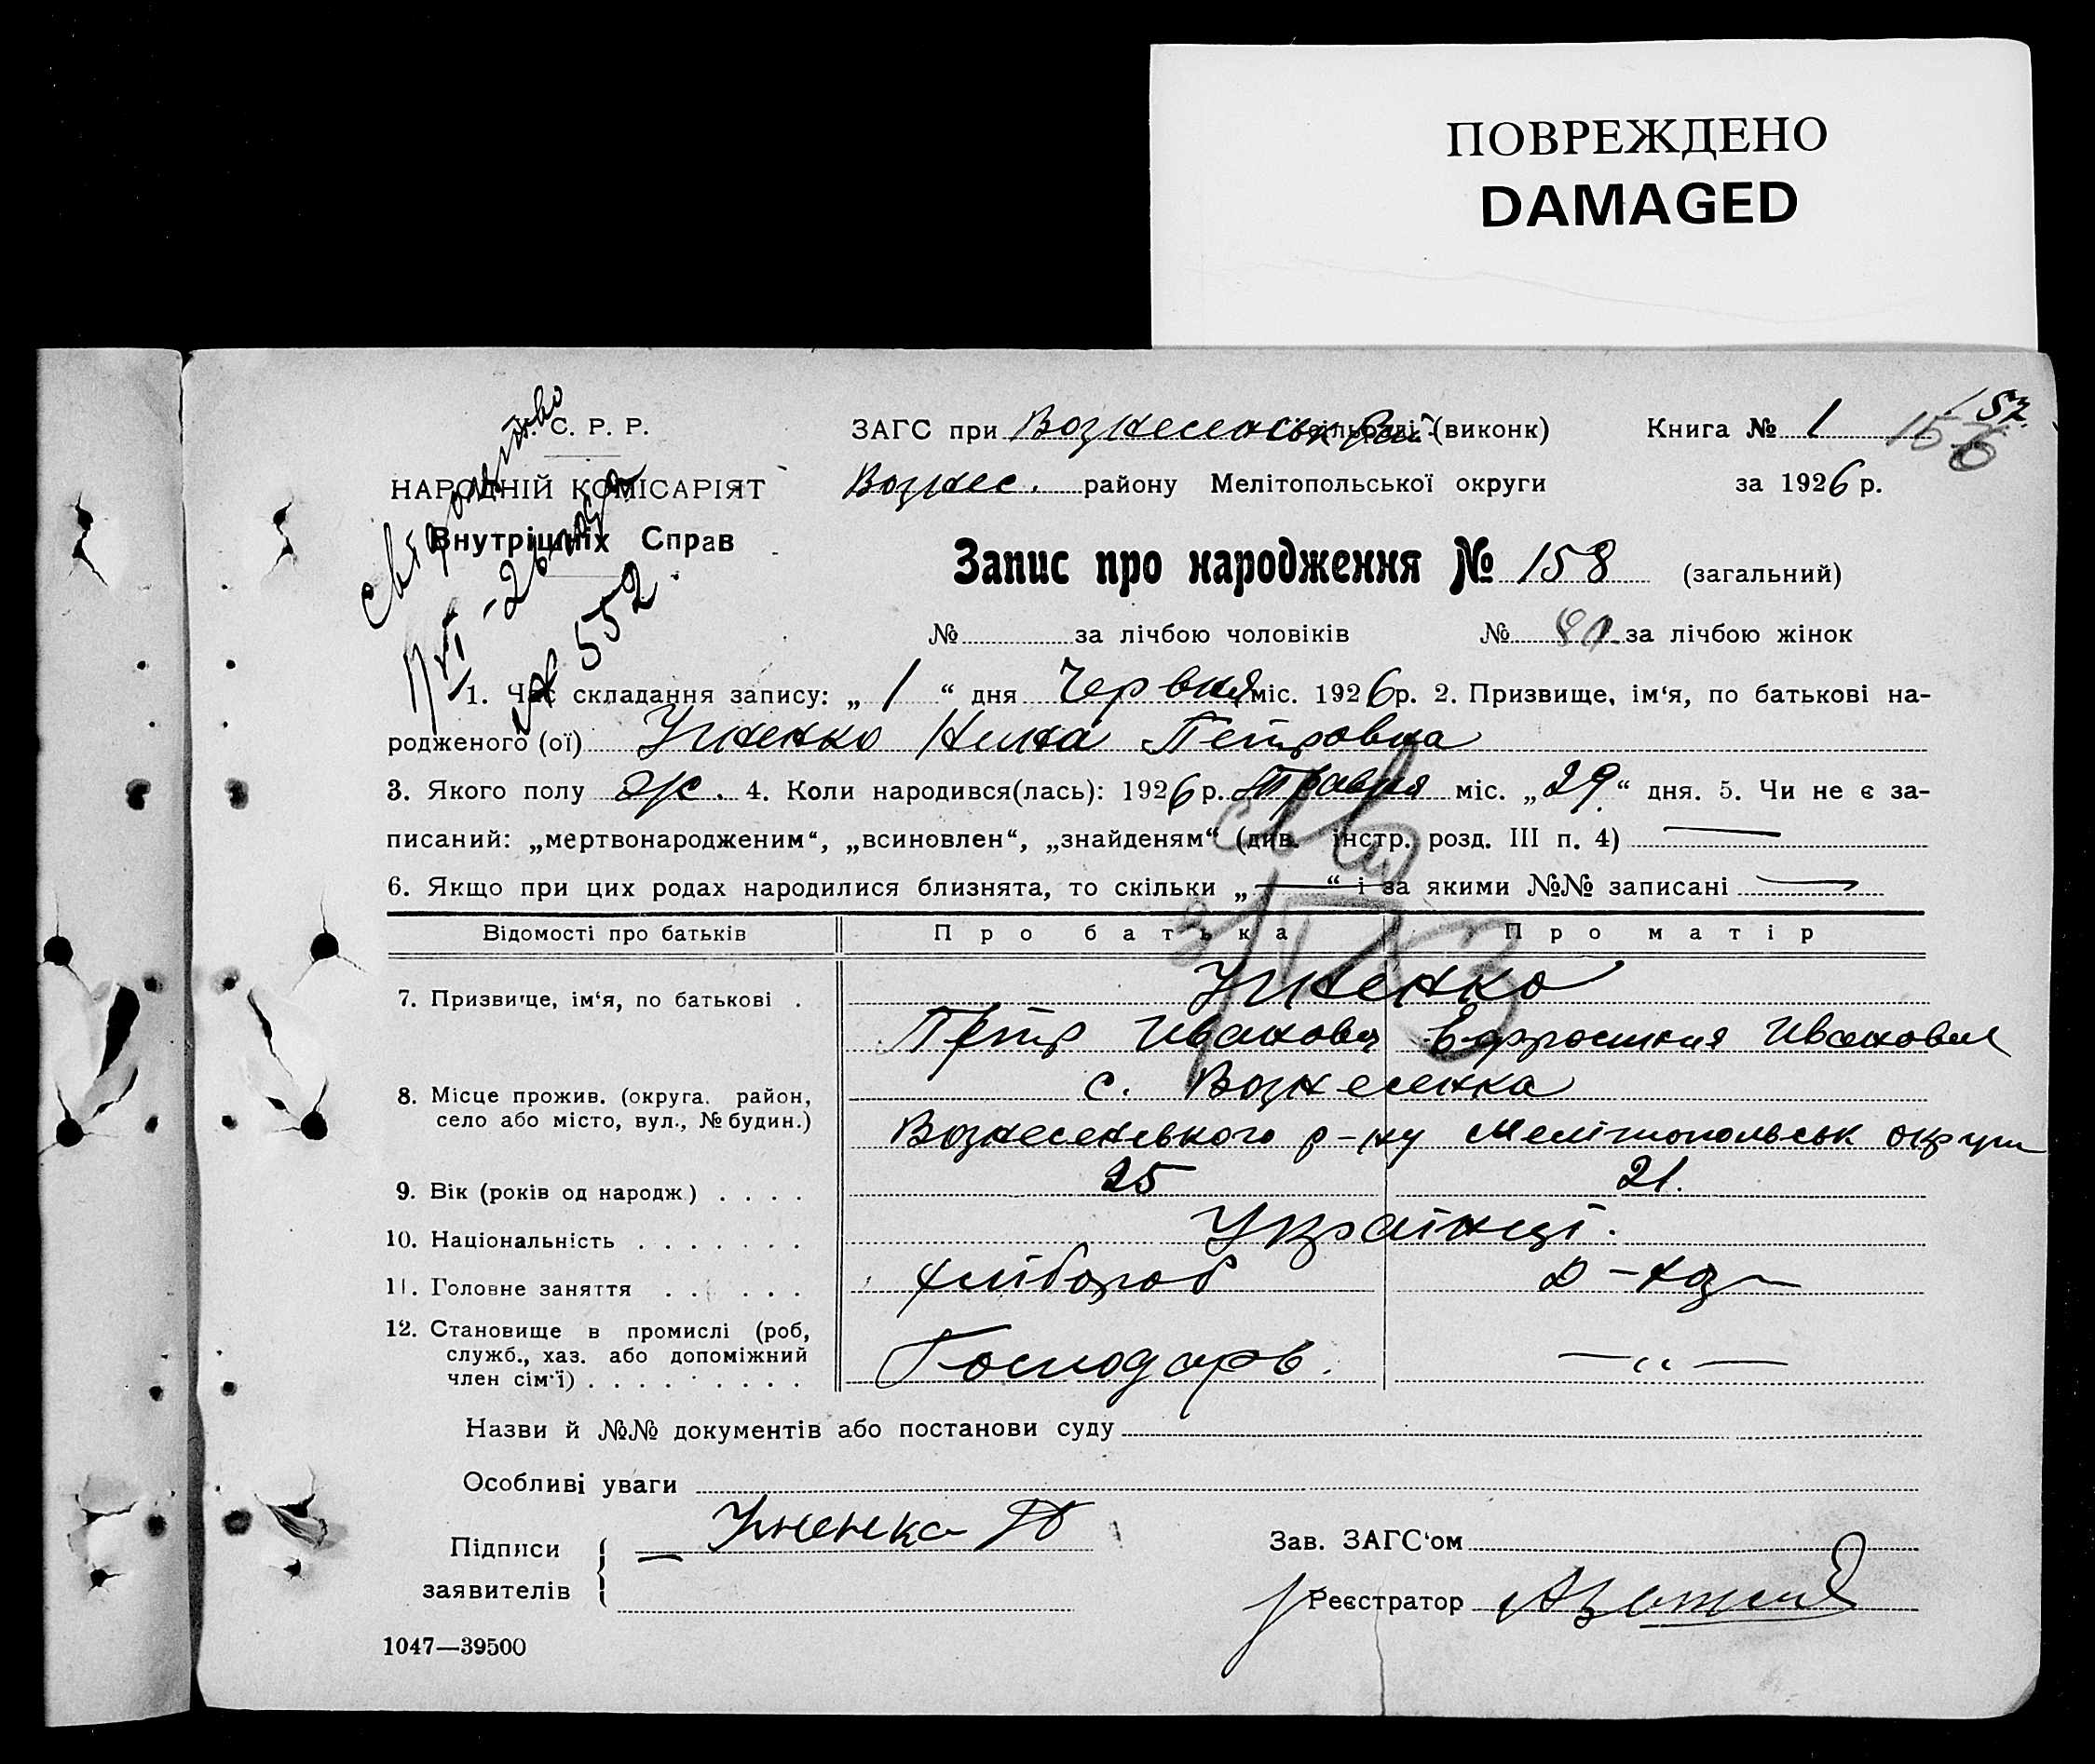 ПОВРЕЖДЕНО
DAMAGED
С. Р. Р.
НАРОДНІЙ КОМІСАРІЯТ
Внутрішніх Справ
свідоцтво
№ 552
ЗАГС при (виконк)
Вознес. району Мелітопольської округи
Книга № 1
157
156
за 1926 р.
Запис про народження № 158 (загальний)
№ за лічбою чоловіків № за лічбою жінок
1. Час складання запису: „ 1 “ дня Червня міс. 1926 р. 2. Призвище, ім‘я, по батькові на-
родженого (ої) Уненко Нина Петровна
3. Якого полу ж. 4. Коли народився(лась): 1926 р. Травня міс. „ 29 “ дня. 5. Чи не є за-
писаний: „мертвонародженим“, „всиновлен“, „знайденям“ (див. інстр. розд. III п. 4) —
6. Якщо при цих родах народилися близнята, то скільки „ — “ і за якими №№ записані —
Відомості про батьків Про батька Про матір
7. Призвище, ім‘я, по батькові . Уненко
Петр Иванович Ефросиния Ивановна
8. Місце прожив. (округа. район, с. Вознесенка
село або місто, вул., № будин.) Вознесенського р-ну Мелітопольськ округи
9. Вік (років од народж.) . . . . 25 21.
10. Національність . . . . . . . Українці.
11. Головне заняття . . . . . . хлібороб
12. Становище в промислі (роб,
служб., хаз. або допоміжний Господарь. — „ —
член сім‘ї) . . . . . . . . .
Назви й №№ документів або постанови суду
Особливі уваги
Підписи Уненко П
заявителів
Зав. ЗАГС‘ом
Реєстратор
1047—39500